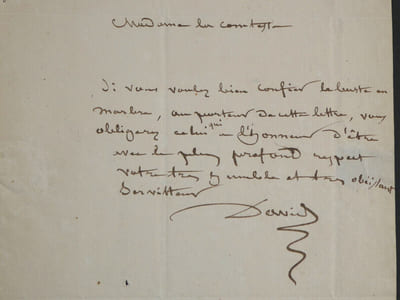 Madame la comtesse
Si vous voulez bien confier le buste en
marbre, au porteur de cette lettre, vous
obligerez celui qui a l'honneur d'être
avec le plus profond respect
votre tres humble et tres obéissant
Serviteur